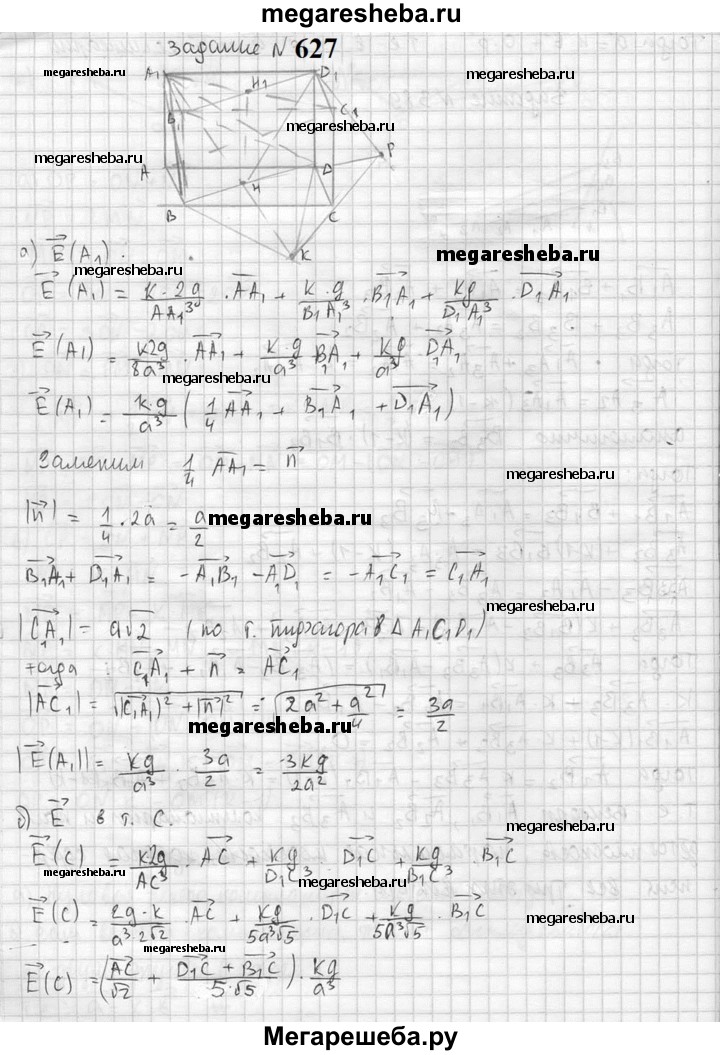 megaresheba.ru
Задание N 627
A₁ H₁ D₁
megaresheba.ru megaresheba.ru
B₁ C₁
megaresheba.ru
megaresheba.ru P
A D
H
B C
K
а) E⃗(A₁).
megaresheba.ru
megaresheba.ru
E⃗(A₁) = k·2g/AA₁³ · AA₁ + k·g/B₁A₁³ · B₁A₁ + kg/D₁A₁³ · D₁A₁
E⃗(A₁) = k2g/8a³ · AA₁ + k·g/a³ B₁A₁ + kg/a³ D₁A₁
megaresheba.ru
E⃗(A₁) = k·g/a³ (1/4 AA₁ + B₁A₁ + D₁A₁)
Заменим 1/4 AA₁ = n⃗
megaresheba.ru
|n⃗| = 1/4 · 2a = a/2
megaresheba.ru
B₁A₁ + D₁A₁ = -A₁B₁ - A₁D₁ = -A₁C₁ = C₁A₁
megaresheba.ru
|C₁A₁| = a√2 (по т. пифагора в Δ A₁C₁D₁)
тогда : C₁A₁ + n⃗ = AC₁
megaresheba.ru
|AC₁| = √(|C₁A₁|² + |n⃗|²) = √(2a² + a²/4) = 3a/2
megaresheba.ru
|E⃗(A₁)| = kg/a³ · 3a/2 = 3kg/2a²
б) E⃗ в т. C.
megaresheba.ru
E⃗(C) = k2g/AC³ · AC + kg/D₁C³ · D₁C + kg/B₁C³ · B₁C
megaresheba.ru
megaresheba.ru
E⃗(C) = 2g·k/a³·2√2 · AC + kg/5a³√5 · D₁C + kg/5a³√5 · B₁C
megaresheba.ru
megaresheba.ru
E⃗(C) = (AC/√2 + D₁C + B₁C/5·√5) · kg/a³
megaresheba.ru
Мегарешеба.ру